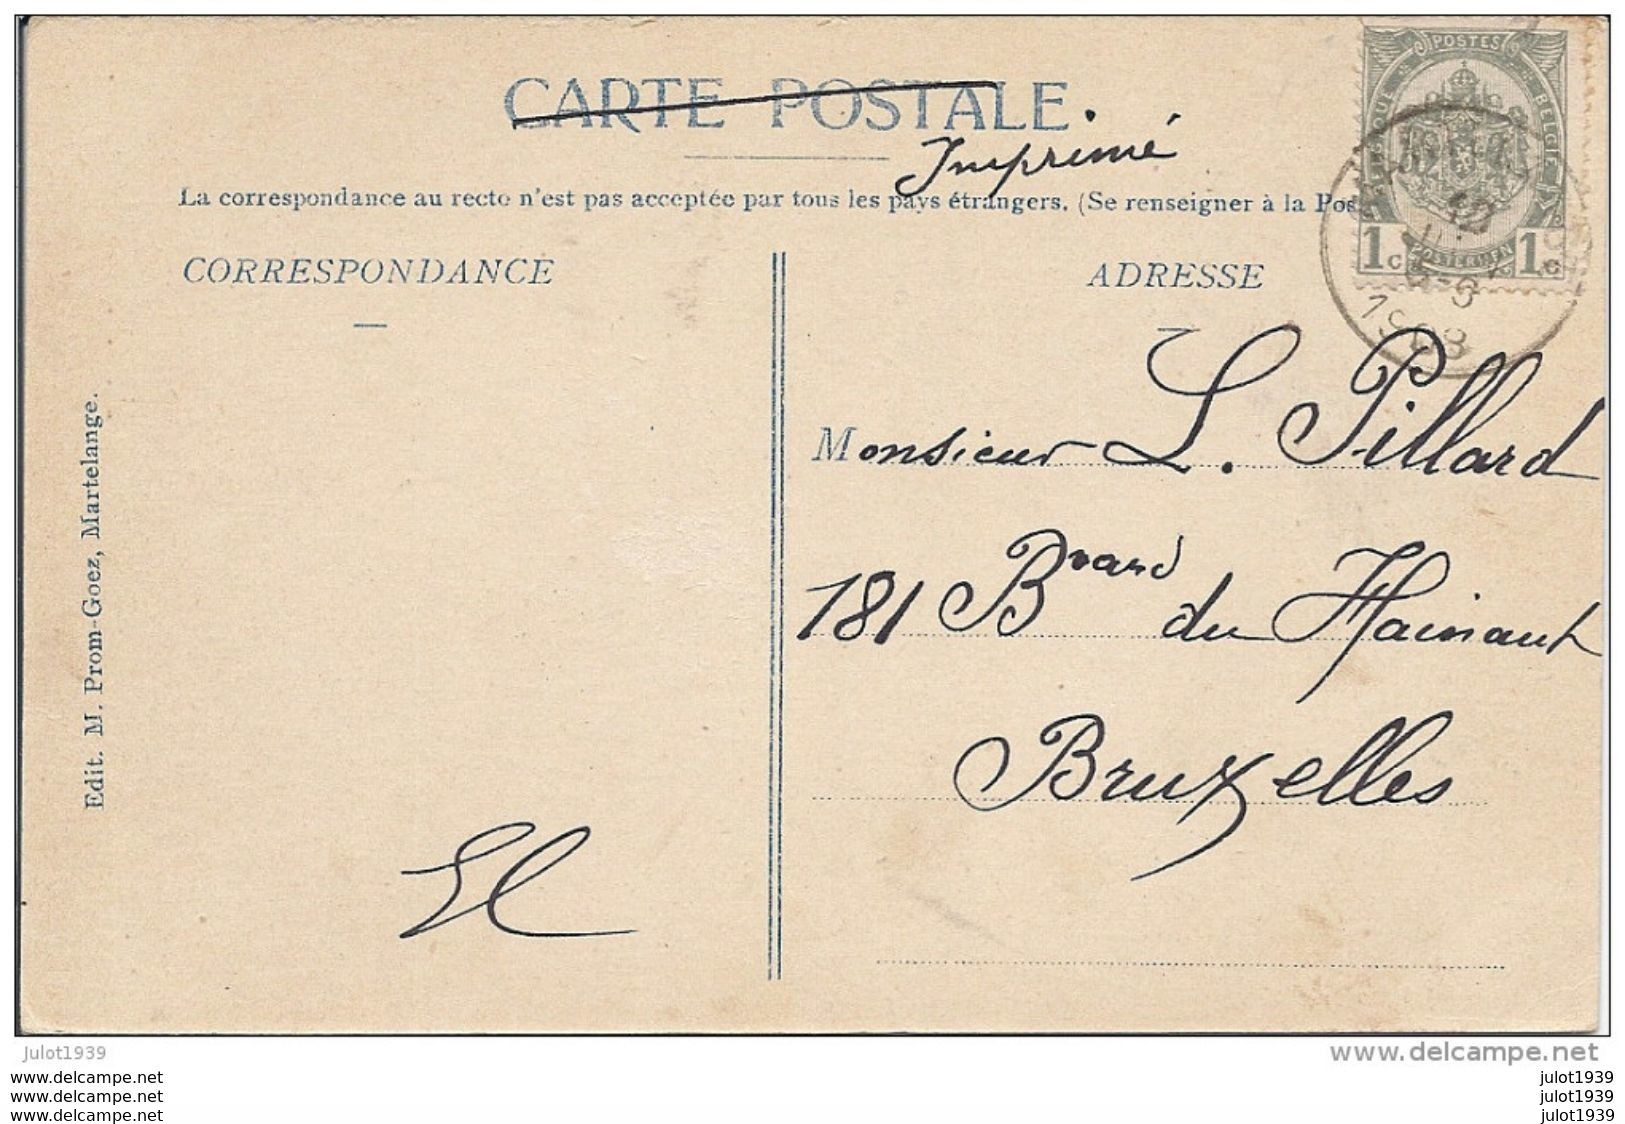 CARTE POSTALE.
Imprimé
La correspondance au recto n'est pas acceptée par tous les pays étrangers. (Se renseigner à la Pos
CORRESPONDANCE
ADRESSE
POSTES
BELGIQUE
BELGIE
POSTERIJEN
1c 1c
12
1908
Monsieur L. Pillard
181 Bvard du Hainaut
Bruxelles
Edit. M. Prom-Goez, Martelange.
julot1939
www.delcampe.net
www.delcampe.net
www.delcampe.net
www.delcampe.net
julot1939
julot1939
julot1939